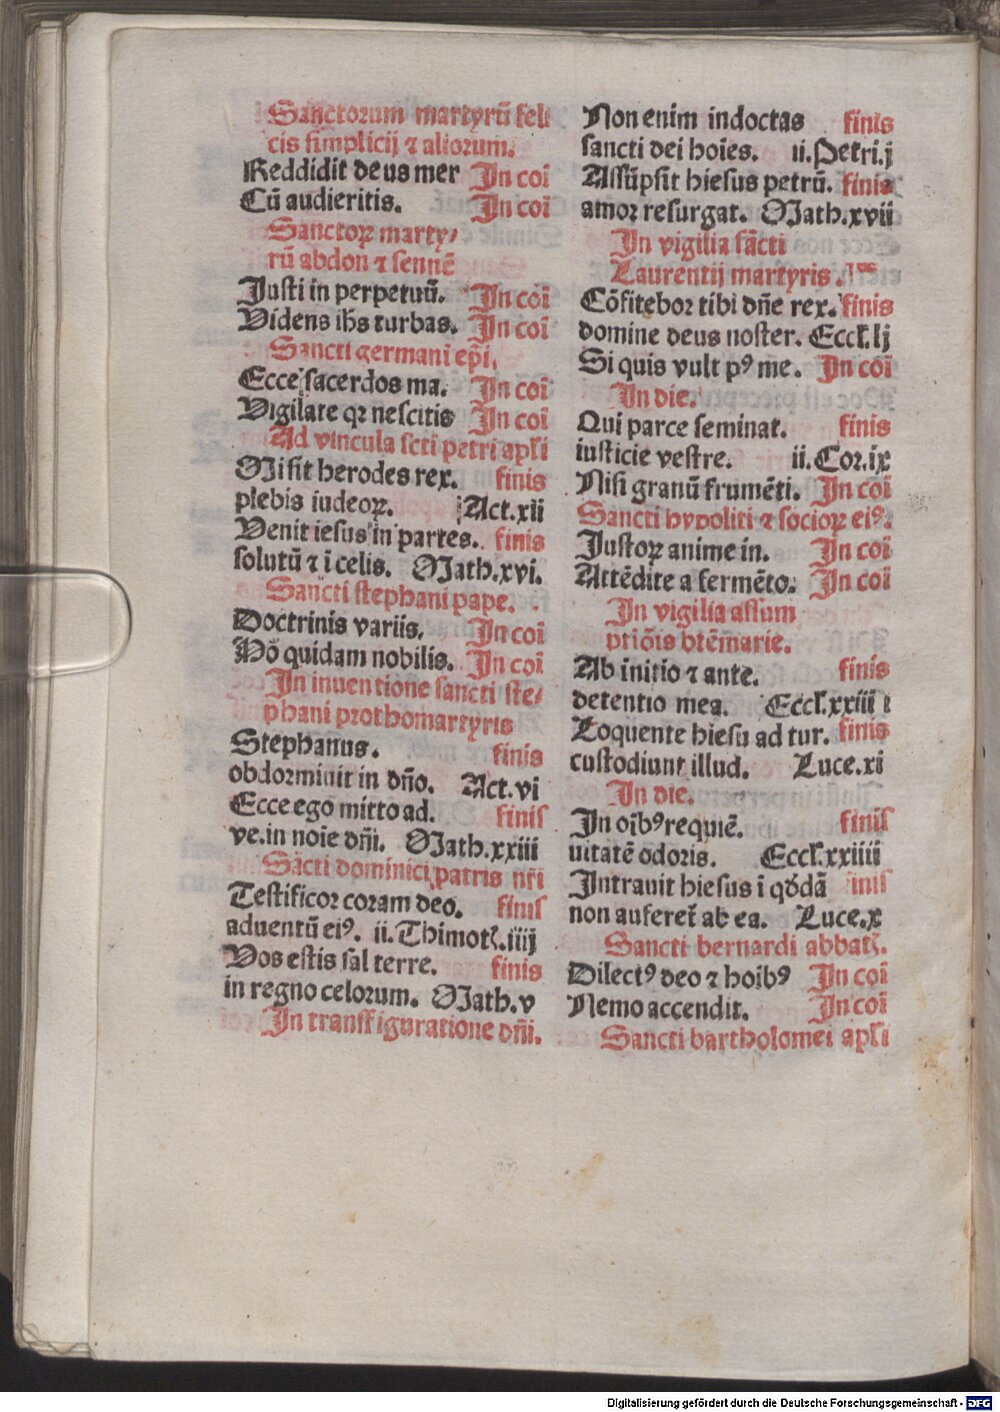 Sanctorum martyrū feli
cis simplicij ⁊ aliorum.
Reddidit deus mer In coī
Cū audieritis. In coī
Sanctoꝝ marty/
rū abdon ⁊ sennē
Justi in perpetuū. In coī
Videns ihs̄ turbas. In coī
Sancti germani ep̄i.
Ecce sacerdos ma. In coī
Vigilate qꝛ nescitis In coī
Ad vincula sct̄i petri apl̄i
Misit herodes rex. finis
plebis iudeoꝝ. Act.xii
Venit iesus in partes. finis
solutū ⁊ ī celis. Math.xvi.
Sancti stephani pape.
Doctrinis variis. In coī
Hō quidam nobilis. In coī
In inuentione sancti ste/
phani prothomartyris
Stephanus. finis
obdormiuit in dn̄o. Act.vi
Ecce ego mitto ad. finis
ve.in noīe dn̄i. Math.xxiii
Sācti dominici patris nr̄i
Testificor coram deo. finis
aduentū eiꝰ. ii.Thimot.iiij
Vos estis sal terre. finis
in regno celorum. Math.v
In transfiguratione dn̄i.
Non enim indoctas finis
sancti dei hoīes. ii.Petri.j
Assūpsit hiesus petrū. finis
amor resurgat. Math.xvii
In vigilia sācti
Laurentij martyris.
Cōfitebor tibi dn̄e rex. finis
domine deus noster. Eccl.lj
Si quis vult pꝰ me. In coī
In die.
Qui parce seminat. finis
iusticie vestre. ii.Cor.ix
Nisi granū frumēti. In coī
Sancti hypoliti ⁊ socioꝝ eiꝰ.
Justoꝝ anime in. In coī
Attēdite a fermēto. In coī
In vigilia assum
ptiōis btē marie.
Ab initio ⁊ ante. finis
detentio mea. Eccl.xxiiii
Loquente hiesu ad tur. finis
custodiunt illud. Luce.xi
In die.
In oībꝰ requiē. finis
uitatē odoris. Eccl.xxiiii
Intrauit hiesus ī qddā finis
non auferet̄ ab ea. Luce.x
Sancti bernardi abbat.
Dilectꝰ deo ⁊ hoībꝰ In coī
Nemo accendit. In coī
Sancti bartholomei apl̄i
Digitalisierung gefördert durch die Deutsche Forschungsgemeinschaft - DFG